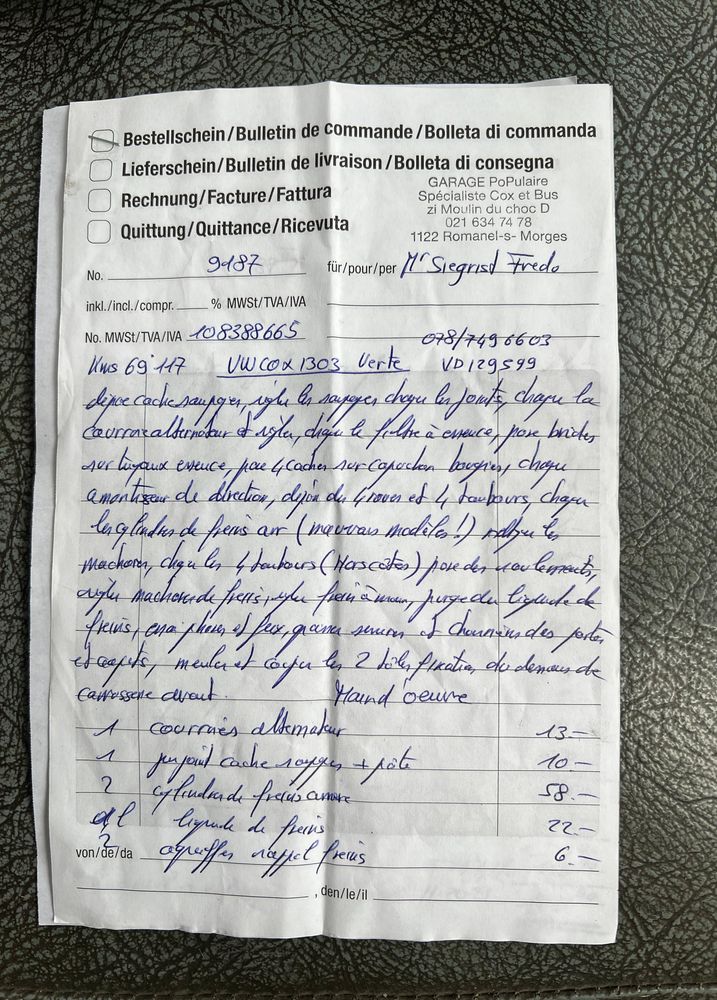 Bestellschein/Bulletin de commande/Bolleta di commanda
Lieferschein/Bulletin de livraison/Bolleta di consegna
Rechnung/Facture/Fattura
Quittung/Quittance/Ricevuta
GARAGE PoPulaire
Spécialiste Cox et Bus
zi Moulin du choc D
021 634 74 78
1122 Romanel-s- Morges
No. 9187 für/pour/per Mr Siegrist Fredo
inkl./incl./compr. % MWSt/TVA/IVA
No. MWSt/TVA/IVA 108388665
078/749 6603
Kms 69'117 VW COX 1303 Verte VD129599
dépose cache soupapes, régler les soupapes changer les joints, changer la
courroie alternateur et régler, changer le filtre à essence, pose brides
sur tuyaux essence, pose 4 caches sur capuchon bougies, changer
amortisseur de direction, dépose des 4 roues et 4 tambours, changer
les cylindres de freins arr (mauvais modèles!) les
machoires, les 4 tambours (Hors côtes) pose des roulements,
régler machoires de freins, régler frein à main, purge du liquide de
freins, phares et feux, graisser serrures et charnières des portes
et capots, meuler et couper les 2 tôles fixation du dessous de
carrosserie avant. Maind'oeuvre
1 courroies alternateur 13.—
1 jeu joint cache soupapes + pâte 10.—
2 cylindres de freins arriere 58.—
1l liquide de freins 22.—
von/de/da 2 agraffes rappel freins 6.—
, den/le/il